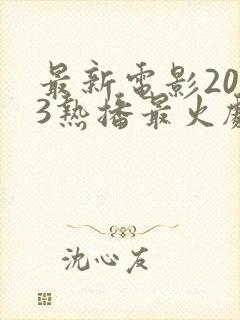 最新電影20
3熱播最火
沈心友